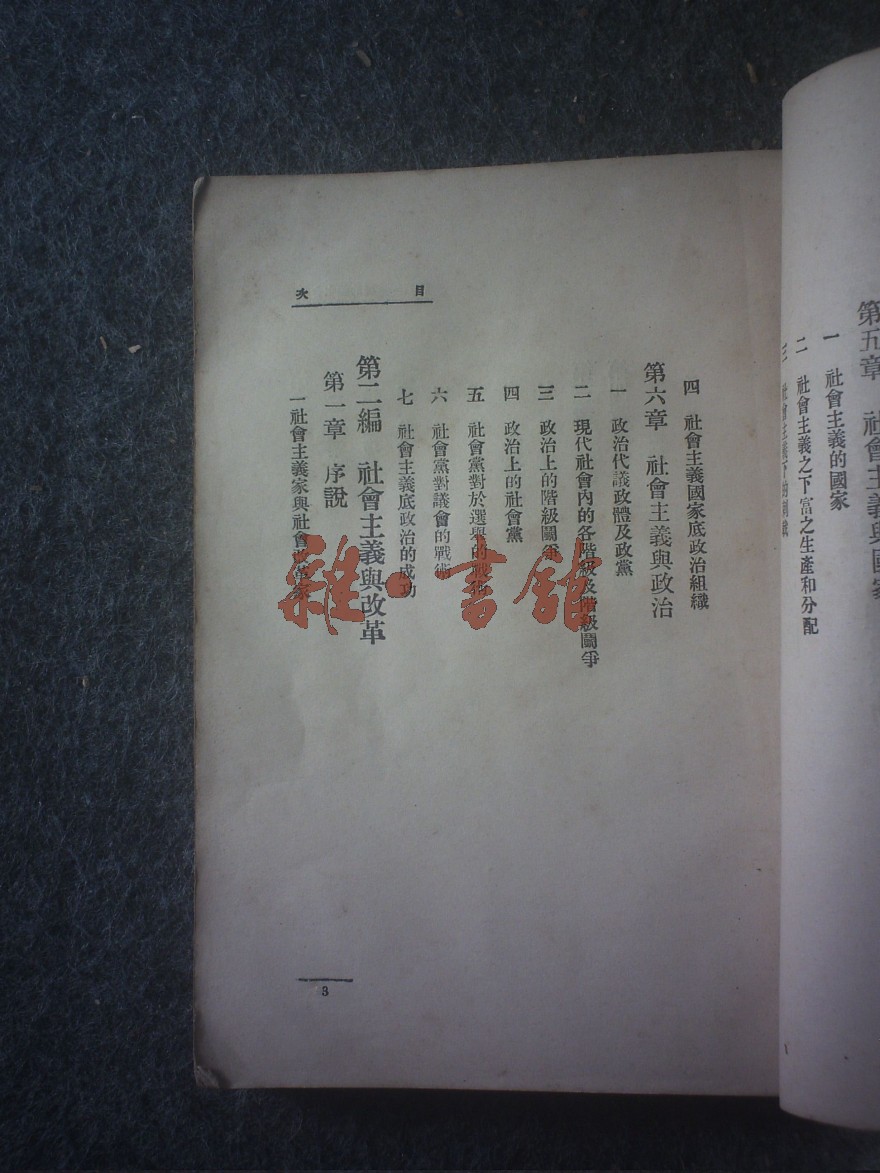 第五章　社會主義與國家
一　社會主義的國家
二　社會主義之下富之生產和分配
三　社會主義下的
目次
四　社會主義國家底政治組織
第六章　社會主義與政治
一　政治代議政體及政黨
二　現代社會內的各階級及階級鬭爭
三　政治上的階級鬭爭
四　政治上的社會黨
五　社會黨對於選舉的戰術
六　社會黨對議會的戰術
七　社會主義底政治的成功
第二編　社會主義與改革
第一章　序說
一社會主義家與社會改革家
3
雜·書館